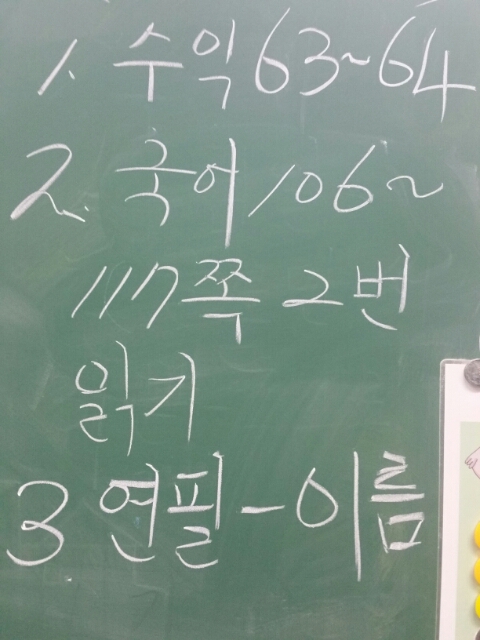 1. 수익 63~64
2. 국어 106~
117쪽 2번
읽기
3 연필-이름